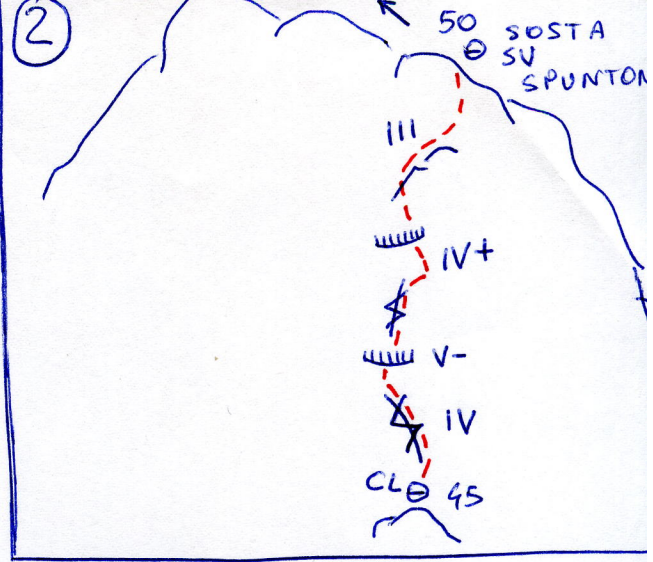 2
50
SOSTA
SU
SPUNTON
III
IV+
V-
IV
CL 45